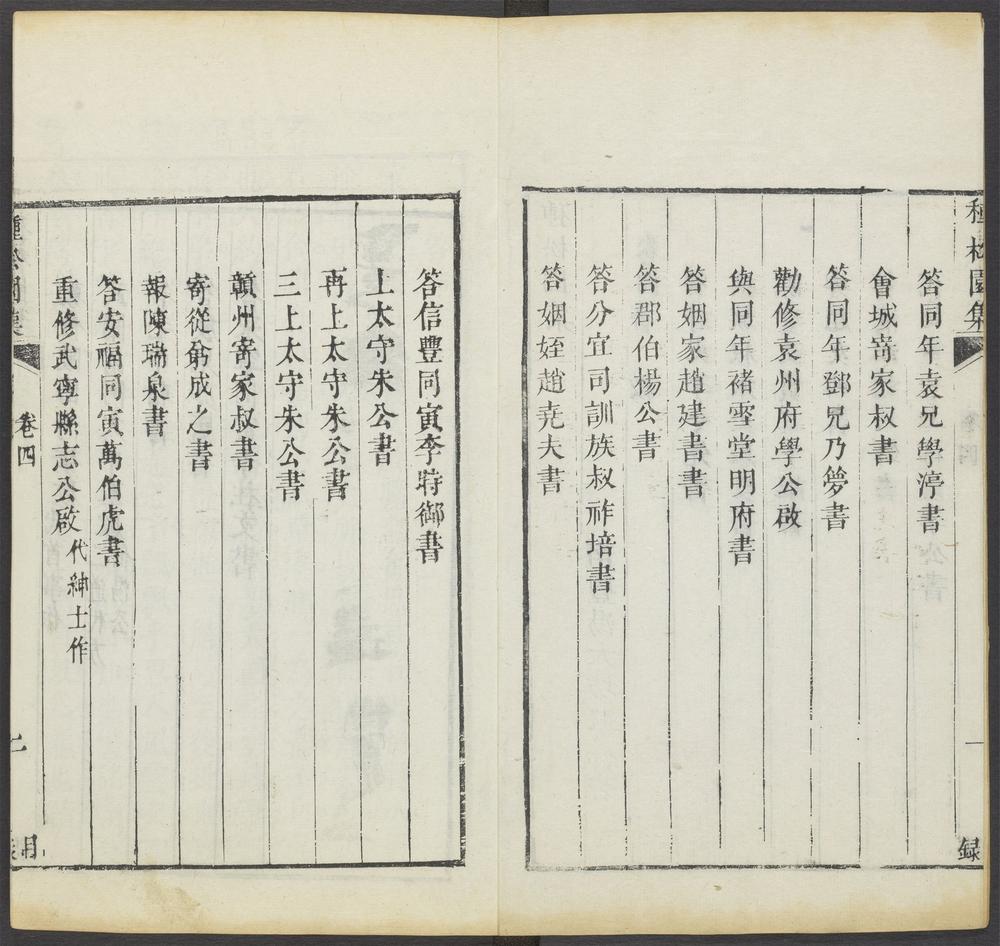 種松園集
一
録
答同年袁兄學渟書
會城寄家叔書
答同年鄧兄乃夢書
勸修袁州府學公啟
與同年褚雪堂明府書
答姻家趙建書書
答郡伯楊公書
答分宜司訓族叔祚培書
答姻姪趙堯夫書
答信豐同寅李特御書
上太守朱公書
再上太守朱公書
三上太守朱公書
贑州寄家叔書
寄從弟成之書
報陳瑞泉書
答安福同寅萬伯虎書
重修武寧縣志公啟 代紳士作
種松園集
卷四
二
目